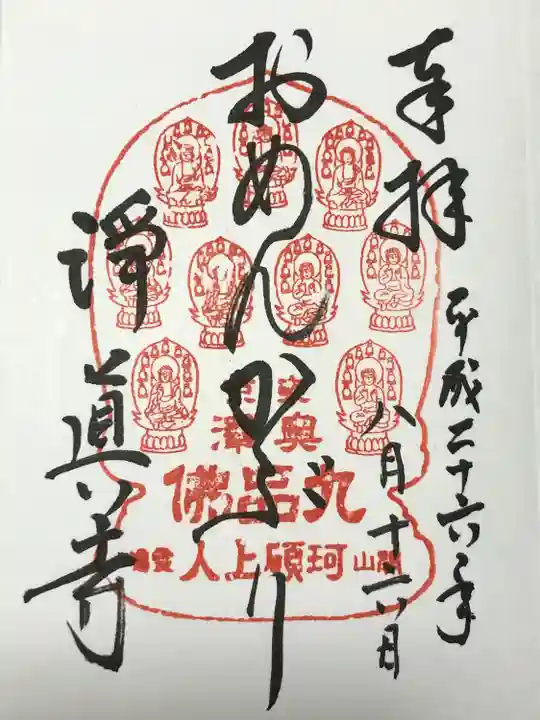 奉拝
平成二十六年
八月十六日
おめんかぶり
淨真寺
奥澤
九品佛
開山 珂碩上人